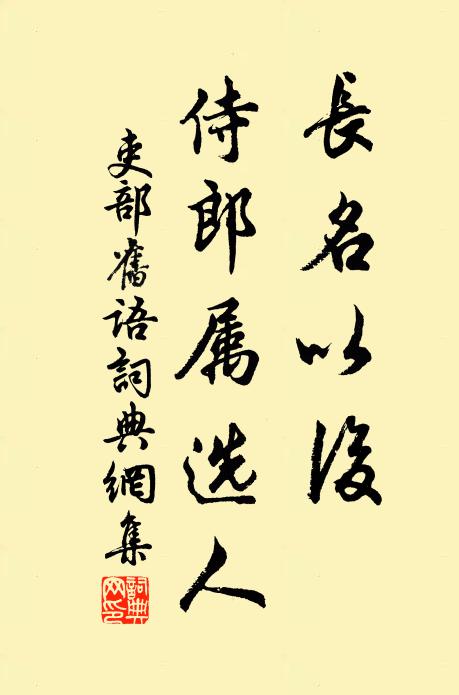 長名以後
侍郎属选人
吏部舊語詞典網集
詞典
网印